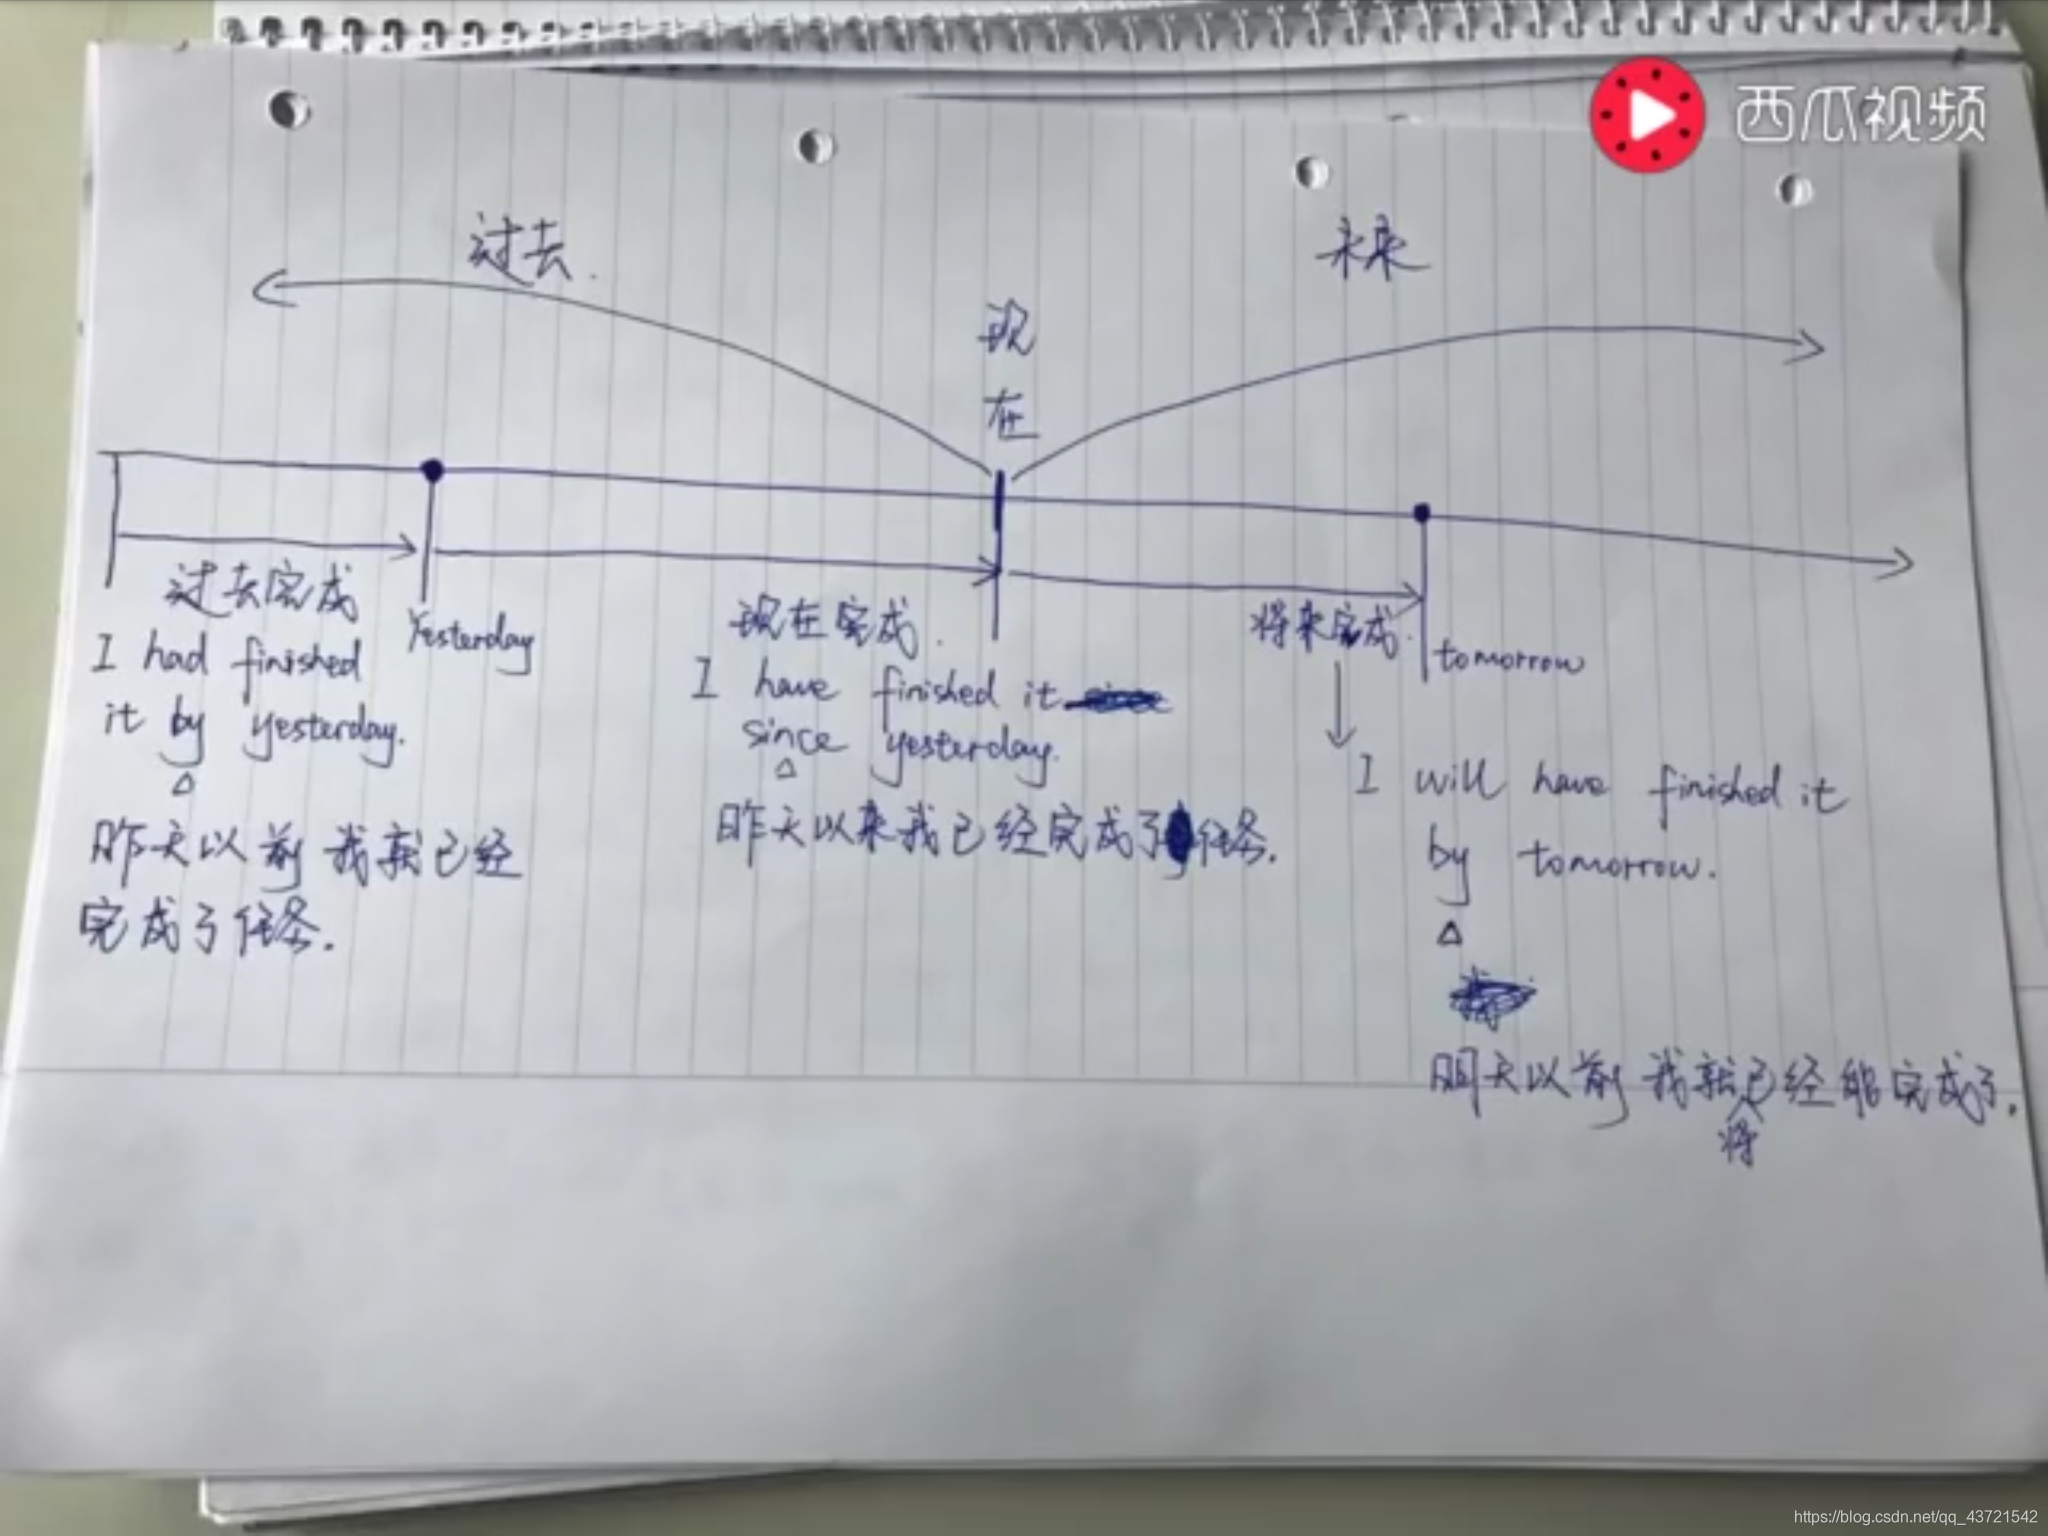 西瓜视频
过去.
未来
现
在
过去完成
Yesterday
I had finished
it by yesterday.
△
昨天以前 我就已经
完成了任务.
现在完成.
I have finished it
since yesterday.
△
昨天以来我已经完成了任务.
将来完成.
tomorrow
I will have finished it
by tomorrow.
△
明天以前 我就已经能完成了.
将
https://blog.csdn.net/qq_43721542